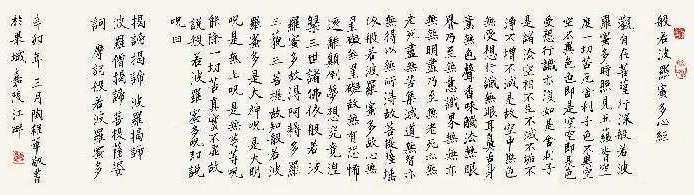 般若波羅蜜多心經
觀自在菩薩行深般若波
羅蜜多時照見五蘊皆空
度一切苦厄舍利子色不異空
空不異色色即是空空即是色
受想行識亦復如是舍利子
是諸法空相不生不滅不垢不
淨不增不減是故空中無色
無受想行識無眼耳鼻舌身
意無色聲香味觸法無眼
界乃至無意識界無無明亦
無無明盡乃至無老死亦無
老死盡無苦集滅道無智亦
無得以無所得故菩提薩埵
依般若波羅蜜多故心無
罣礙無罣礙故無有恐怖
遠離顛倒夢想究竟涅
槃三世諸佛依般若波
羅蜜多故得阿耨多羅
三藐三菩提故知般若波
羅蜜多是大神咒是大明
咒是無上咒是無等等咒
能除一切苦真實不虛故
說般若波羅蜜多咒即說
咒曰
揭諦揭諦 波羅揭諦
波羅僧揭諦 菩提薩婆
訶 摩訶般若波羅蜜多
辛卯年三月陶程華敬書
於果城嘉陵江畔